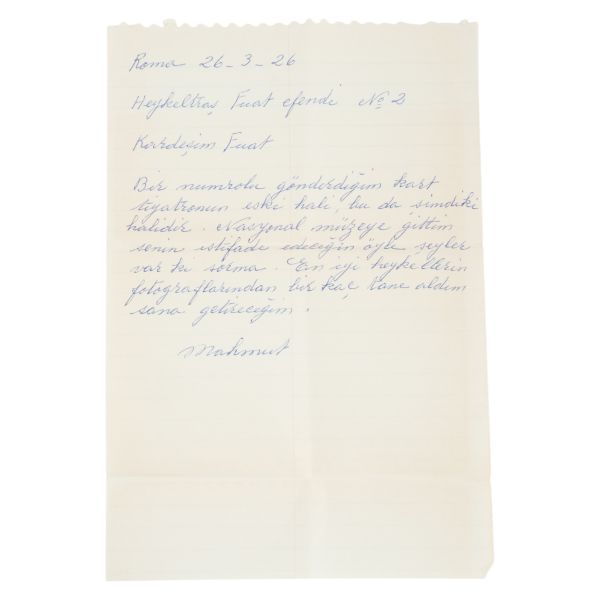 Roma 26-3-26
Heykeltraş Fuat efendi No 2
Kardeşim Fuat
Bir numrolu gönderdiğim kart
tiyatronun eski hali, bu da simdiki
halidir. Nasyonal müzeye gittim
senin istifade edeceğin öyle seyler
var ki sorma. En iyi heykellerin
fotograflarından bir kaç tane aldım
sana getireceğim.
Mahmut